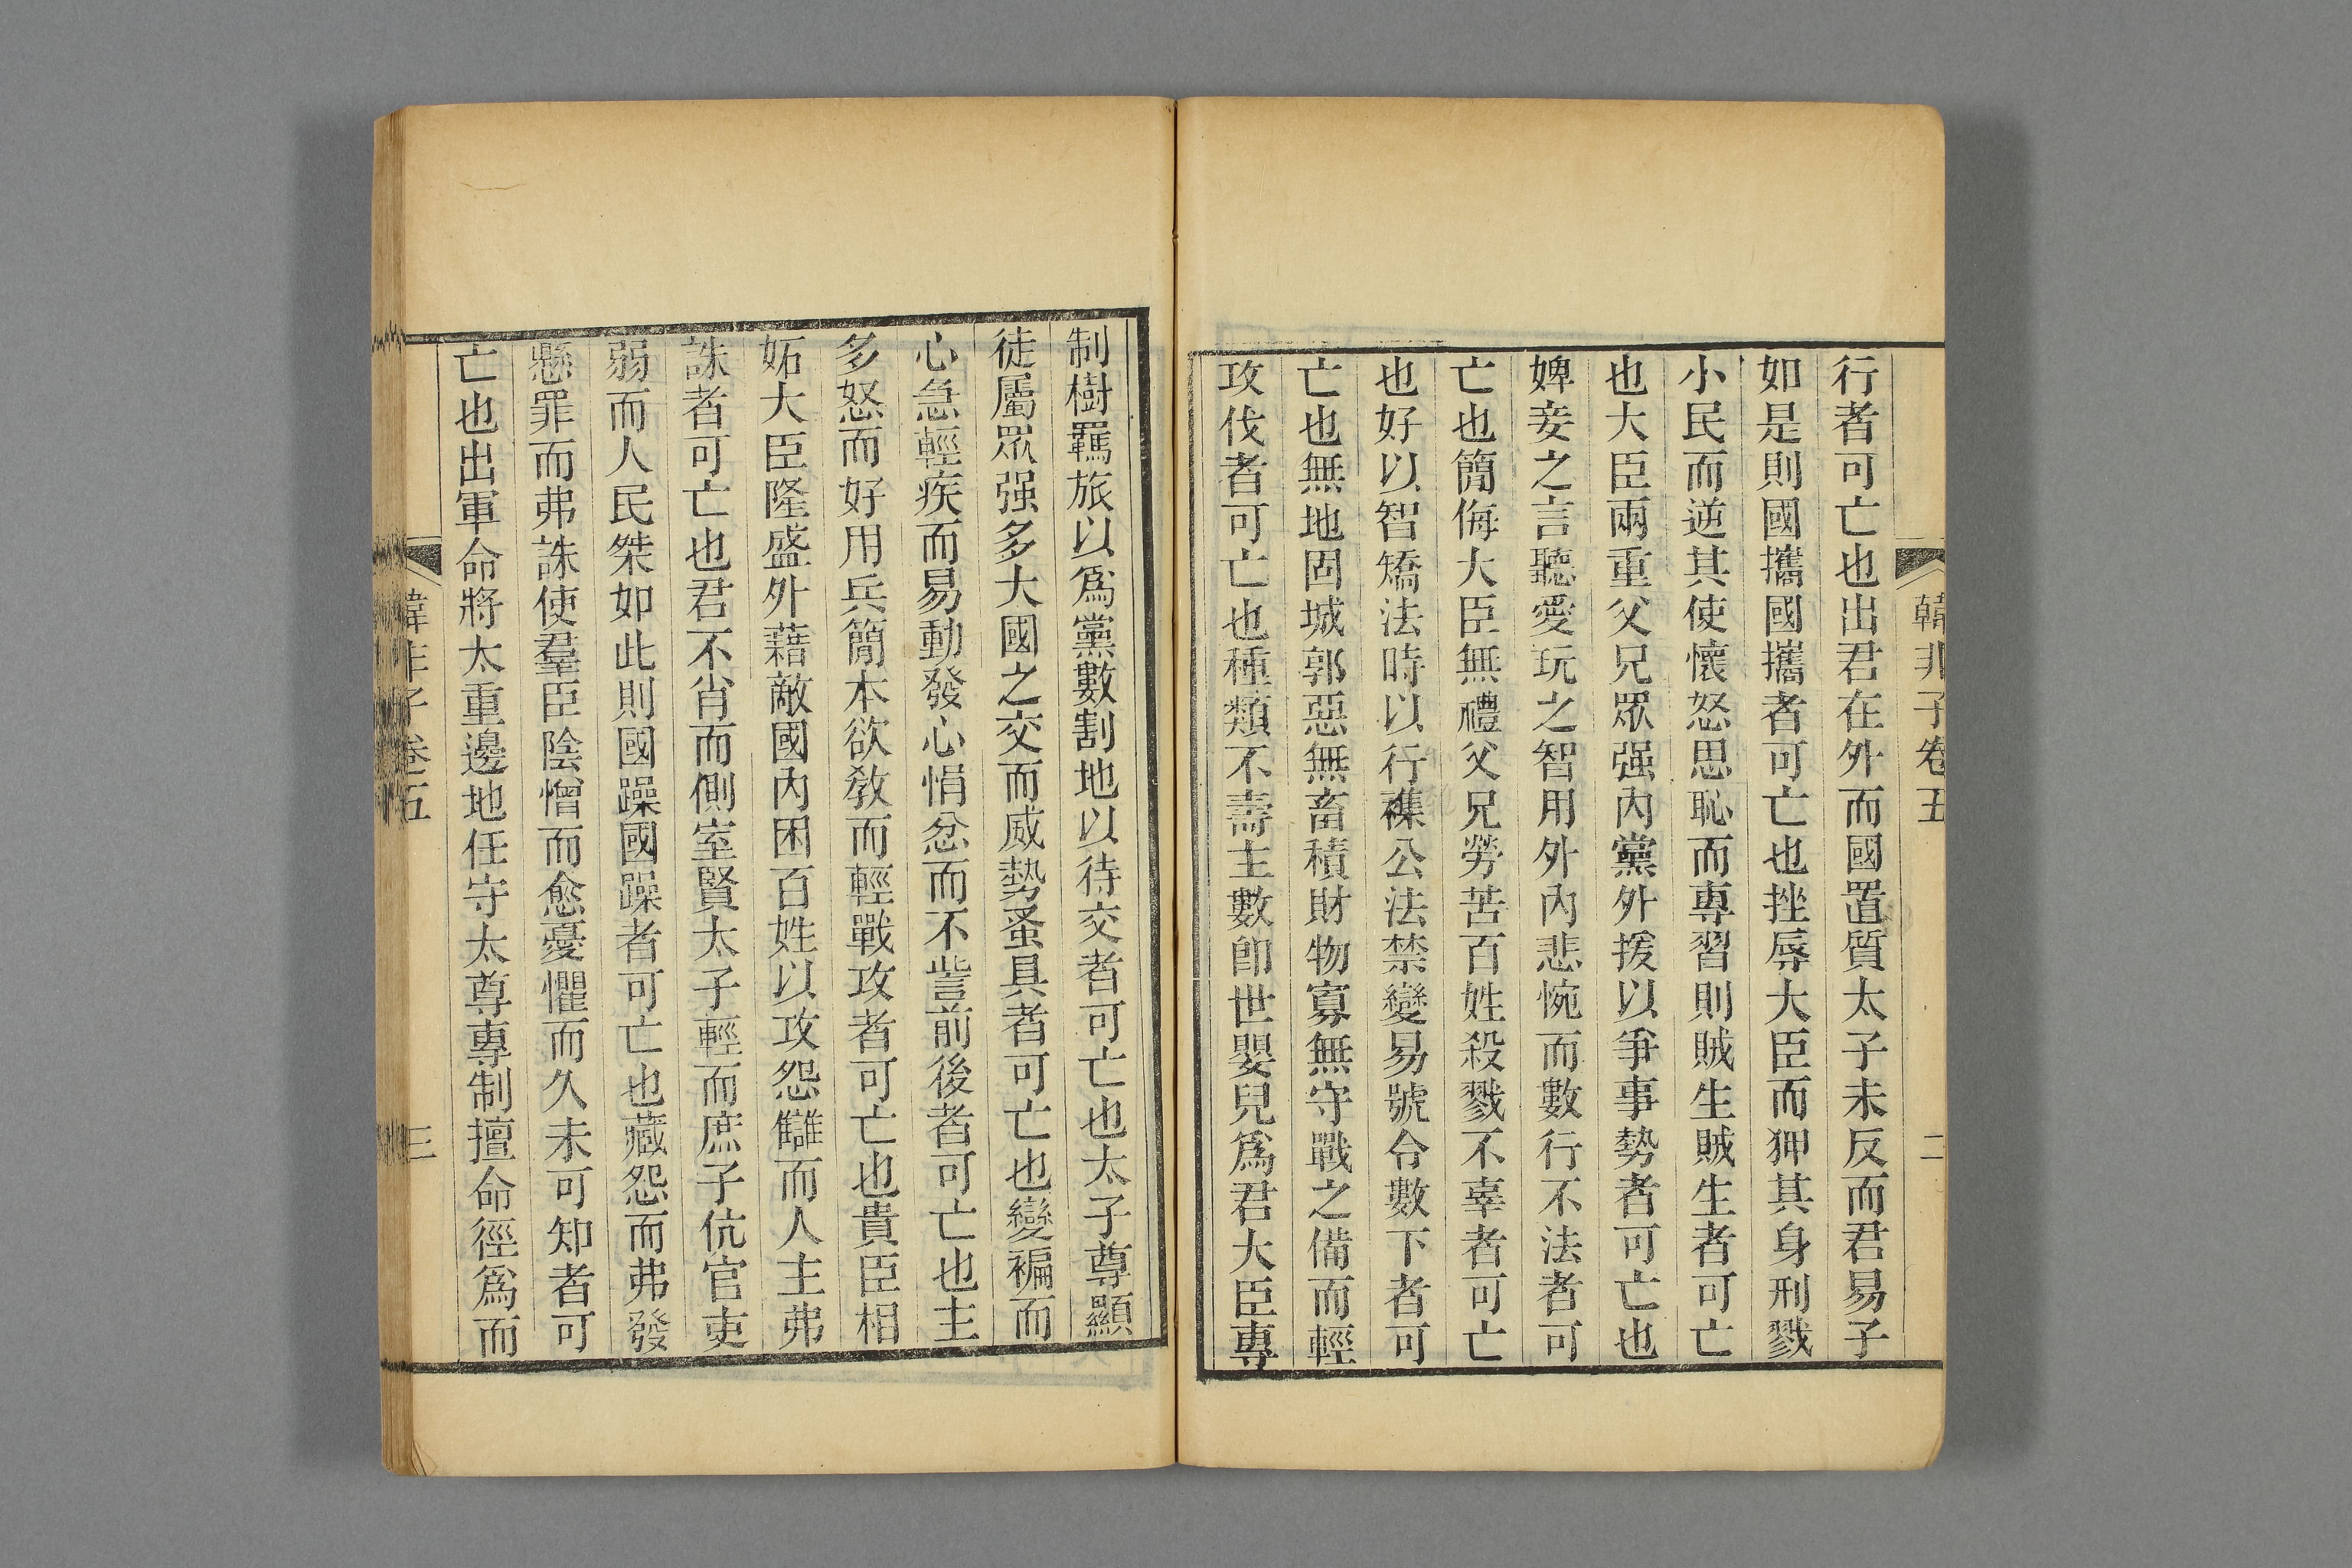 韓非子卷五
二
行者可亡也出君在外而國置質太子未反而君易子
如是則國攜國攜者可亡也挫辱大臣而狎其身刑戮
小民而逆其使懷怒思恥而專習則賊生賊生者可亡
也大臣兩重父兄眾强內黨外援以爭事勢者可亡也
婢妾之言聽愛玩之智用外內悲惋而數行不法者可
亡也簡侮大臣無禮父兄勞苦百姓殺戮不辜者可亡
也好以智矯法時以行襍公法禁變易號令數下者可
亡也無地固城郭惡無畜積財物寡無守戰之備而輕
攻伐者可亡也種類不壽主數卽世嬰兒爲君大臣專
制樹羈旅以爲黨數割地以待交者可亡也太子尊顯
徒屬眾强多大國之交而威勢蚤具者可亡也變褊而
心急輕疾而易動發心悁忿而不訾前後者可亡也主
多怒而好用兵簡本欲敎而輕戰攻者可亡也貴臣相
妬大臣隆盛外藉敵國內困百姓以攻怨讎而人主弗
誅者可亡也君不肖而側室賢太子輕而庶子伉官吏
弱而人民桀如此則國躁國躁者可亡也藏怨而弗發
懸罪而弗誅使羣臣陰憎而愈憂懼而久未可知者可
亡也出軍命將太重邊地任守太尊專制擅命徑爲而
韓非子卷五
三